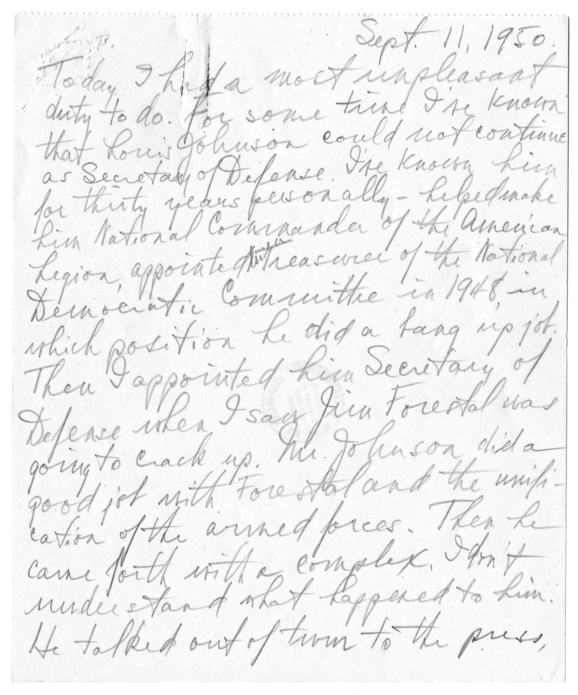 Sept. 11, 1950.
Today I had a most unpleasant
duty to do. For some time I've known
that Louis Johnson could not continue
as Secretary of Defense. I've known him
for thirty years personally - helped make
him National Commander of the American
Legion, appointed him Treasurer of the National
Democratic Committee in 1948 in
which position he did a bang up job.
Then I appointed him Secretary of
Defense when I saw Jim Forestal was
going to crack up. Mr. Johnson did a
good job with Forestal and the unifi-
cation of the armed forces. Then he
came forth with a complex. I don't
understand what happened to him.
He talked out of turn to the press,